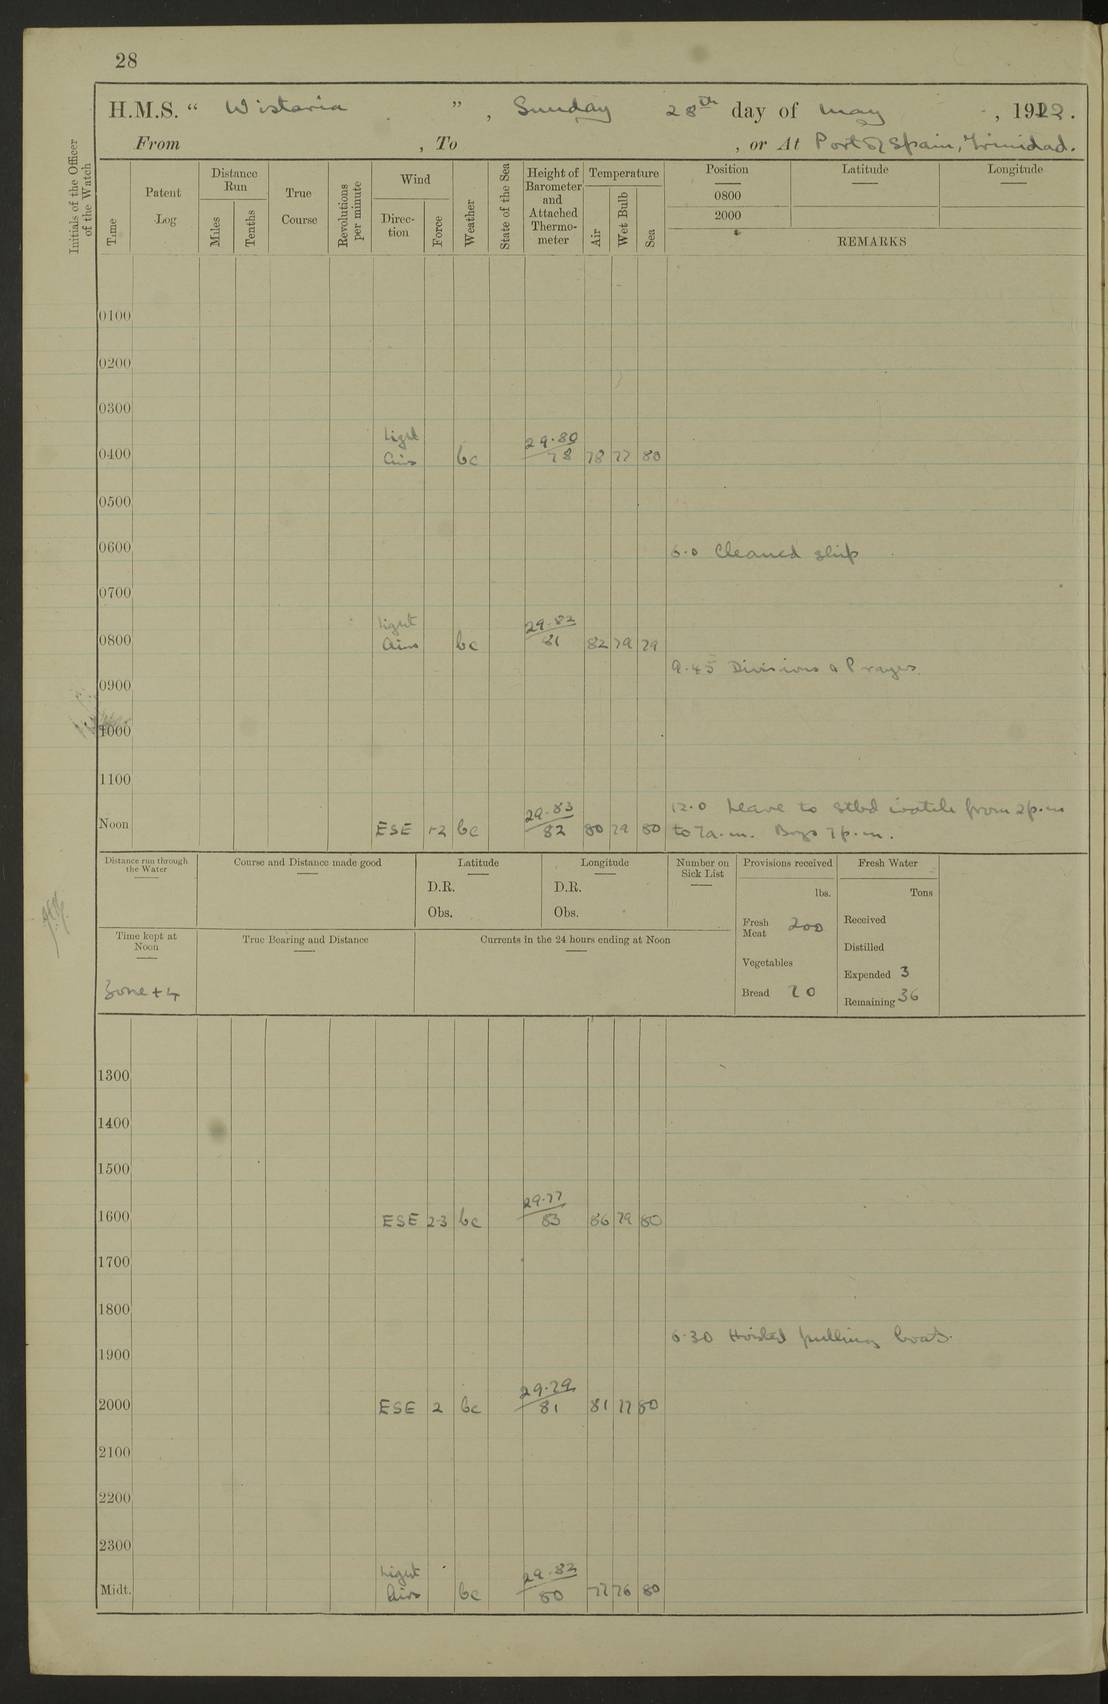 28
H.M.S. “ Wistaria ”, Sunday 28th day of May , 1922.
From , To , or At Port of Spain, Trinidad.
Initials of the Officer of the Watch
Time
Patent Log
Distance Run
Miles
Tenths
True Course
Revolutions per minute
Wind
Direction
Force
Weather
State of the Sea
Height of Barometer and Attached Thermometer
Temperature
Air
Wet Bulb
Sea
Position Latitude Longitude
0800
2000
REMARKS
0100
0200
0300
Light 29.80
0400 Airs bc 78 78 77 80
0500
0600 6.0 Cleaned ship
0700
Light 29.82
0800 Airs bc 81 82 79 79
9.45 Divisions & Prayers.
0900
1000
1100
29.83 12.0 Leave to stbd watch from 2p.m
Noon ESE 1-2 bc 82 80 79 80 to 7a.m. Boys 7p.m.
Distance run through the Water
Course and Distance made good
Latitude
D.R.
Obs.
Longitude
D.R.
Obs.
Number on Sick List
Provisions received
lbs.
Fresh Meat 200
Vegetables
Bread 20
Fresh Water
Tons
Received
Distilled
Expended 3
Remaining 36
Time kept at Noon
Zone +4
True Bearing and Distance
Currents in the 24 hours ending at Noon
1300
1400
1500
29.77
1600 ESE 2-3 bc 83 86 79 80
1700
1800
6.30 Hoisted pulling boats.
1900
29.79
2000 ESE 2 bc 81 81 77 80
2100
2200
2300
Light 29.82
Midt. Airs bc 80 77 76 80